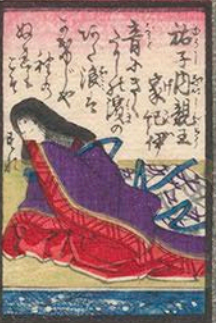 祐子内親王
家紀伊
音にきく
たかしの濱の
あだ浪は
かけじや
袖の
ぬれもこそ
すれ